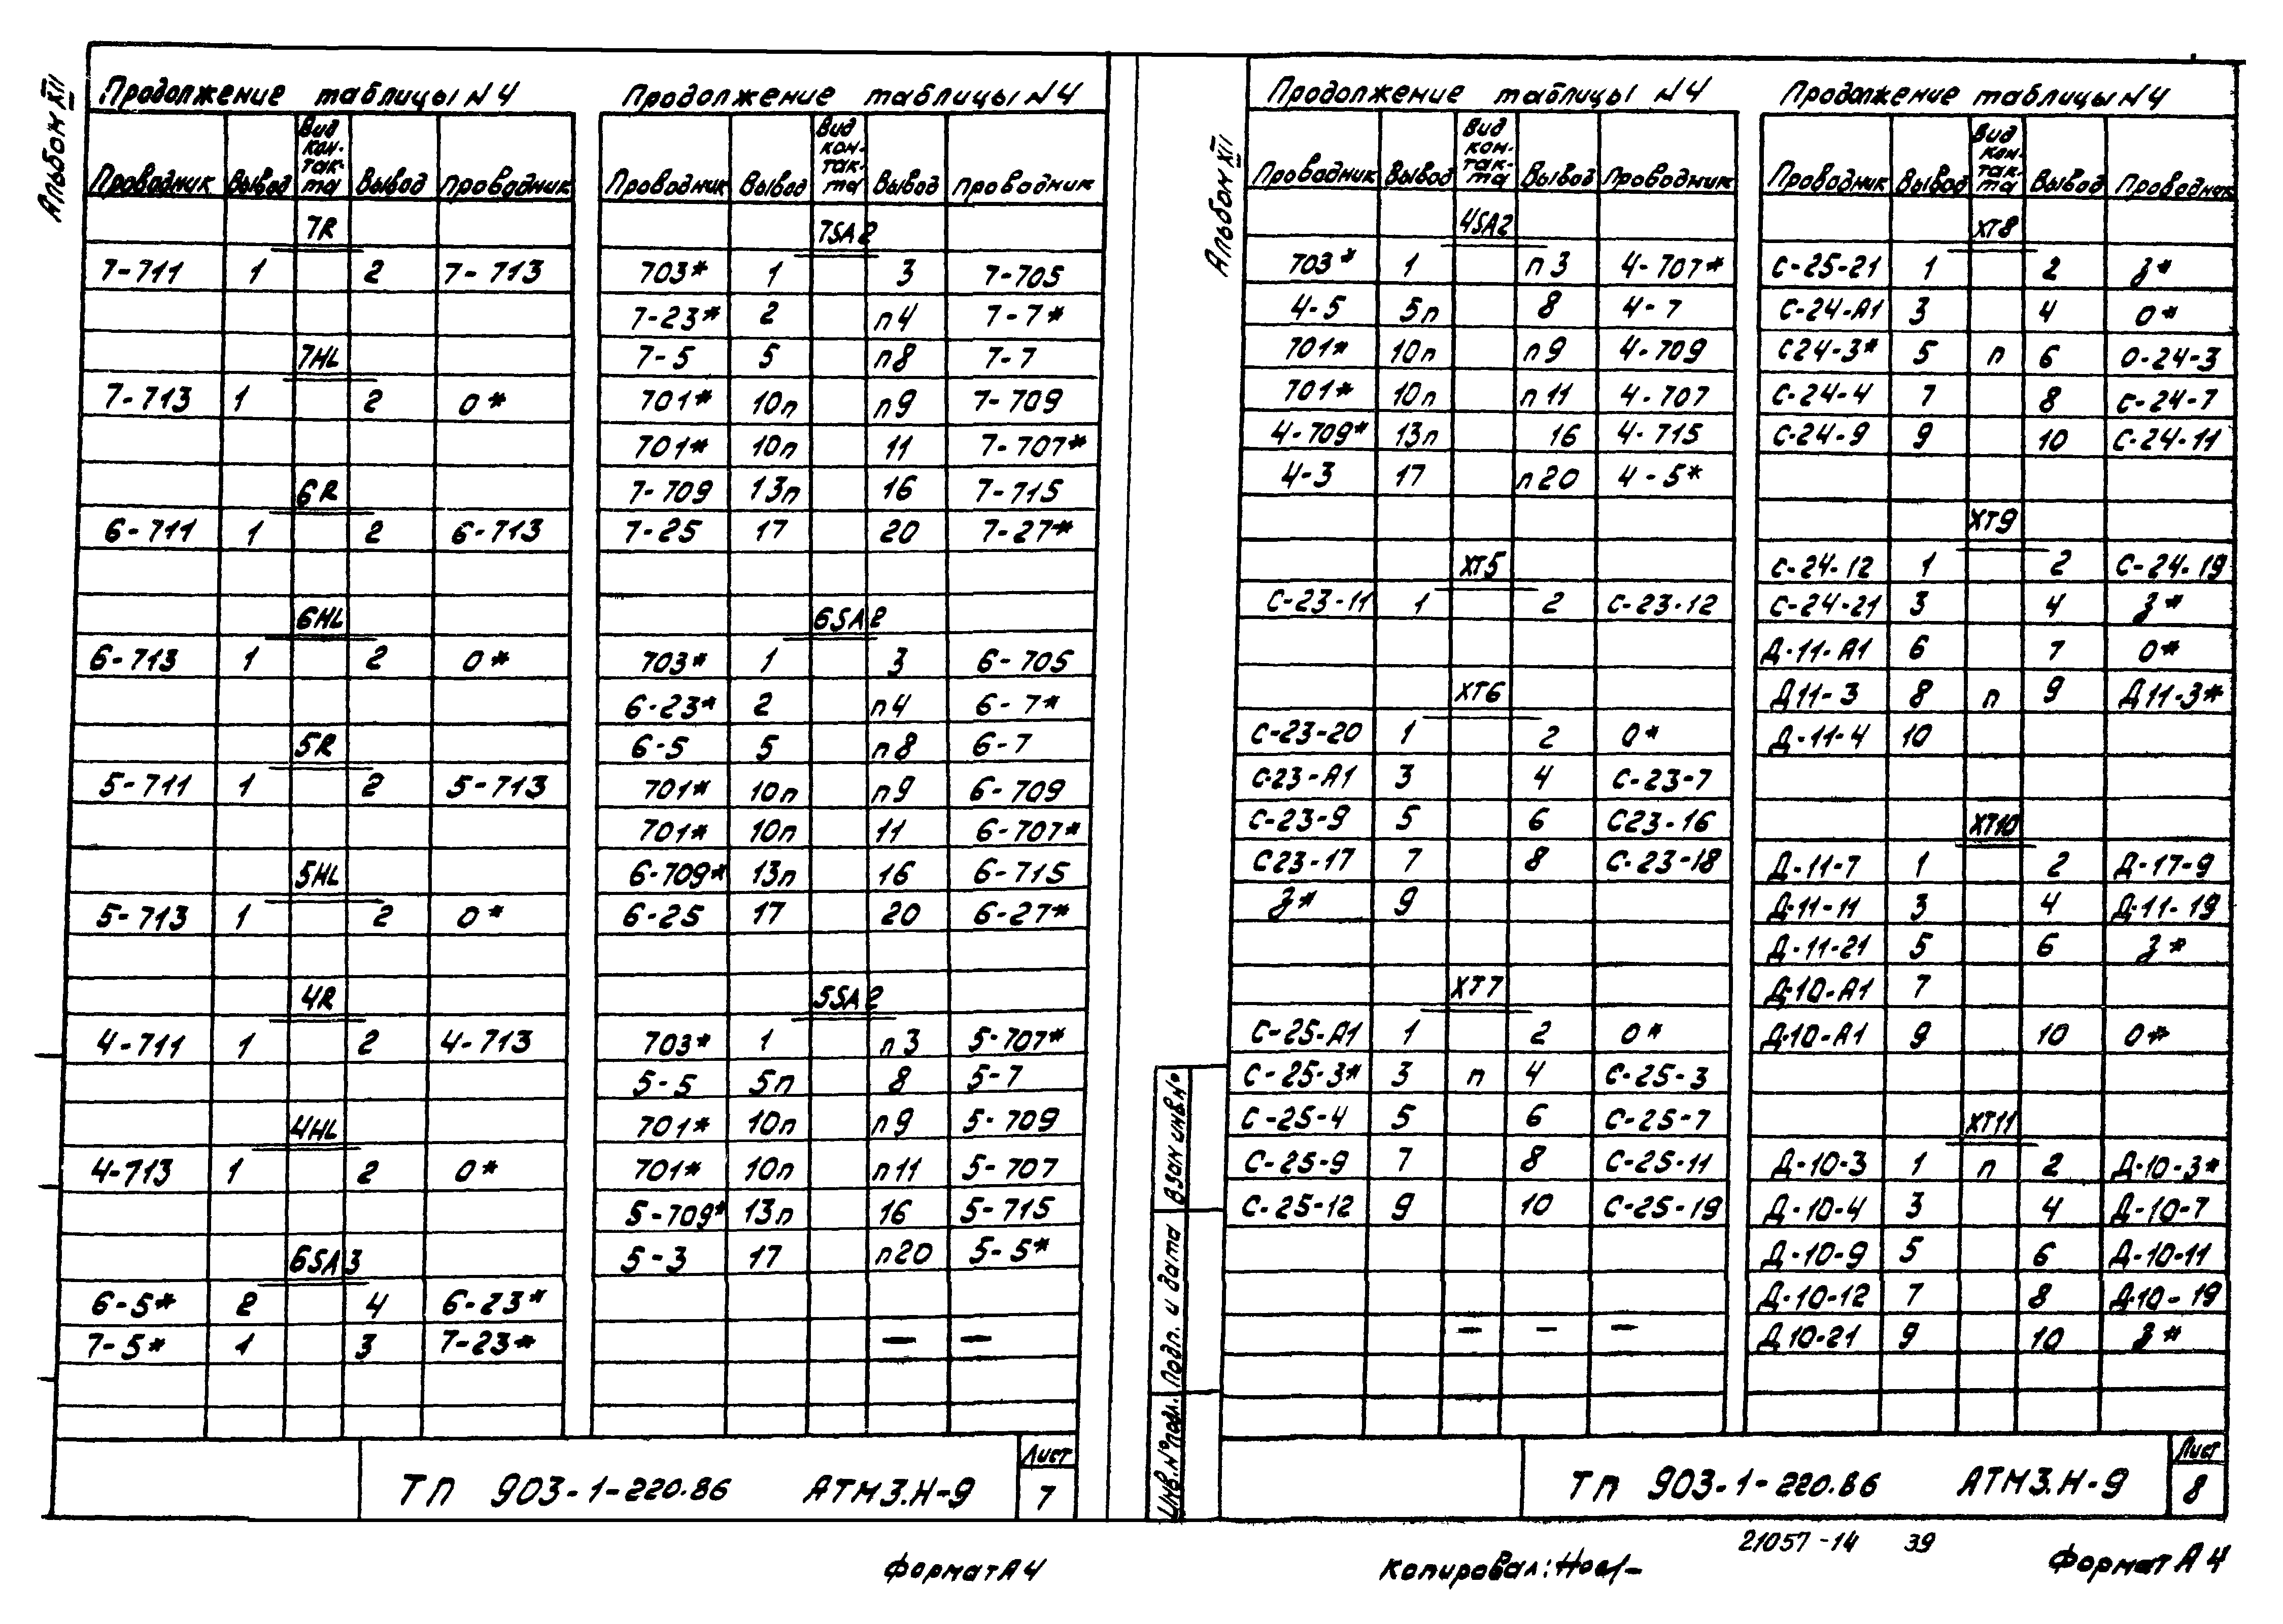 Альбом XII
Продолжение таблицы N4
Проводник Вывод Вид кон-так-та Вывод Проводник
7R
7-711 1 2 7-713
7HL
7-713 1 2 0*
6R
6-711 1 2 6-713
6HL
6-713 1 2 0*
5R
5-711 1 2 5-713
5HL
5-713 1 2 0*
4R
4-711 1 2 4-713
4HL
4-713 1 2 0*
6SA3
6-5* 2 4 6-23*
7-5* 1 3 7-23*
Продолжение таблицы N4
Проводник Вывод Вид кон-так-та Вывод Проводник
7SA2
703* 1 3 7-705
7-23* 2 п4 7-7*
7-5 5 п8 7-7
701* 10п п9 7-709
701* 10п 11 7-707*
7-709 13п 16 7-715
7-25 17 20 7-27*
6SA2
703* 1 3 6-705
6-23* 2 п4 6-7*
6-5 5 п8 6-7
701* 10п п9 6-709
701* 10п 11 6-707*
6-709* 13п 16 6-715
6-25 17 20 6-27*
5SA2
703* 1 п3 5-707*
5-5 5п 8 5-7
701* 10п п9 5-709
701* 10п п11 5-707
5-709* 13п 16 5-715
5-3 17 п20 5-5*
— —
ТП 903-1-220.86 АТМ3.Н-9
Лист
7
Формат А4
Альбом XII
Продолжение таблицы N4
Проводник Вывод Вид кон-так-та Вывод Проводник
4SA2
703* 1 п3 4-707*
4-5 5п 8 4-7
701* 10п п9 4-709
701* 10п п11 4-707
4-709* 13п 16 4-715
4-3 17 п20 4-5*
XT5
С-23-11 1 2 С-23-12
XT6
С-23-20 1 2 0*
С-23-А1 3 4 С-23-7
С-23-9 5 6 С23-16
С23-17 7 8 С-23-18
З* 9
XT7
С-25-А1 1 2 0*
С-25-3* 3 п 4 С-25-3
С-25-4 5 6 С-25-7
С-25-9 7 8 С-25-11
С-25-12 9 10 С-25-19
— — —
Продолжение таблицы N4
Проводник Вывод Вид кон-так-та Вывод Проводник
XT8
С-25-21 1 2 З*
С-24-А1 3 4 0*
С24-3* 5 п 6 0-24-3
С-24-4 7 8 С-24-7
С-24-9 9 10 С-24-11
XT9
С-24-12 1 2 С-24-19
С-24-21 3 4 З*
Д-11-А1 6 7 0*
Д11-3 8 п 9 Д11-3*
Д-11-4 10
XT10
Д-11-7 1 2 Д-17-9
Д-11-11 3 4 Д-11-19
Д-11-21 5 6 З*
Д-10-А1 7
Д-10-А1 9 10 0*
XT11
Д-10-3 1 п 2 Д-10-3*
Д-10-4 3 4 Д-10-7
Д-10-9 5 6 Д-10-11
Д-10-12 7 8 Д10-19
Д10-21 9 10 З*
Взам инв.№
Подп. и дата
Инв.№ подл.
ТП 903-1-220.86 АТМ3.Н-9
Лист
8
21057-14 39
Копировал:
Формат А4